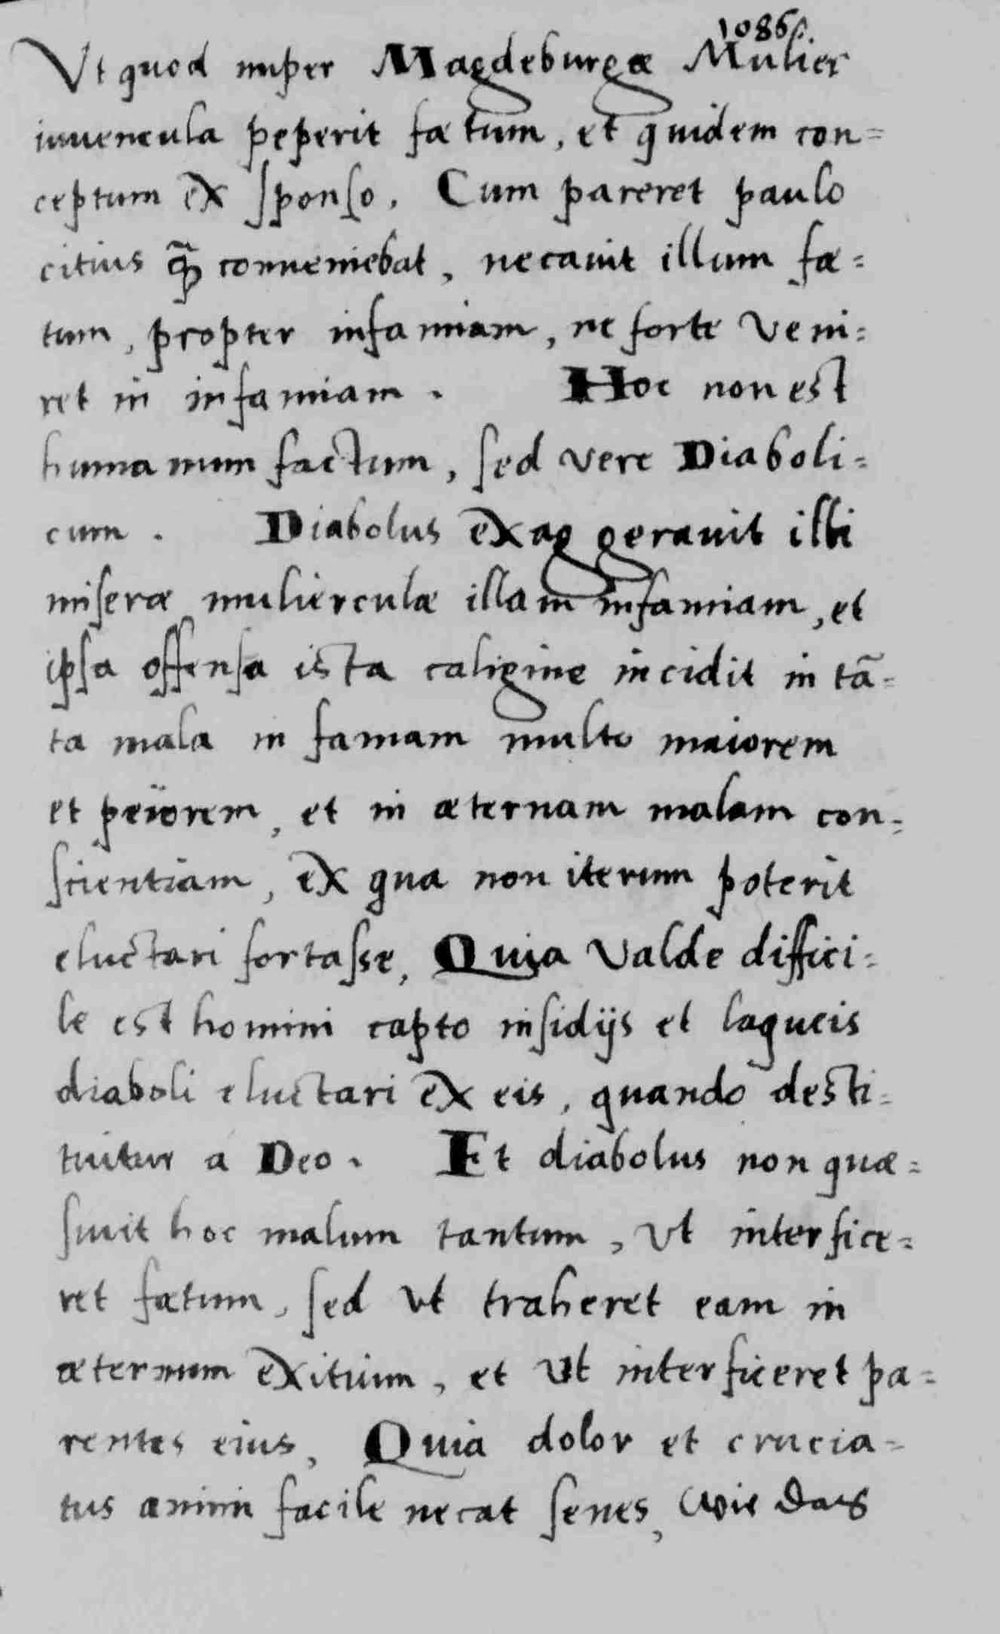 1086.
Vt quod nuper Magdeburgæ Mulier
iuuencula peperit fætum, et quidem con=
ceptum ex sponso. Cum pareret paulo
citius quã conueniebat, necauit illum fæ=
tum, propter infamiam, ne forte veni=
ret in infamiam. Hoc non est
humanum factum, sed vere Diaboli=
cum. Diabolus exaggerauit illi
miseræ mulierculæ illam infamiam, et
ipsa offensa ista caligine incidit in tã=
ta mala in famam multo maiorem
et peiorem, et in æternam malam con=
scientiam, ex qua non iterum poterit
eluctari fortasse, Quia valde diffici=
le est homini capto insidijs et laqueis
diaboli eluctari ex eis, quando desti=
tuitur a Deo. Et diabolus non quæ=
siuit hoc malum tantum, vt interfice=
ret fætum, sed vt traheret eam in
æternum exitium, et vt interficeret pa=
rentes eius, Quia dolor et crucia=
tus animi facile necat senes, wie das